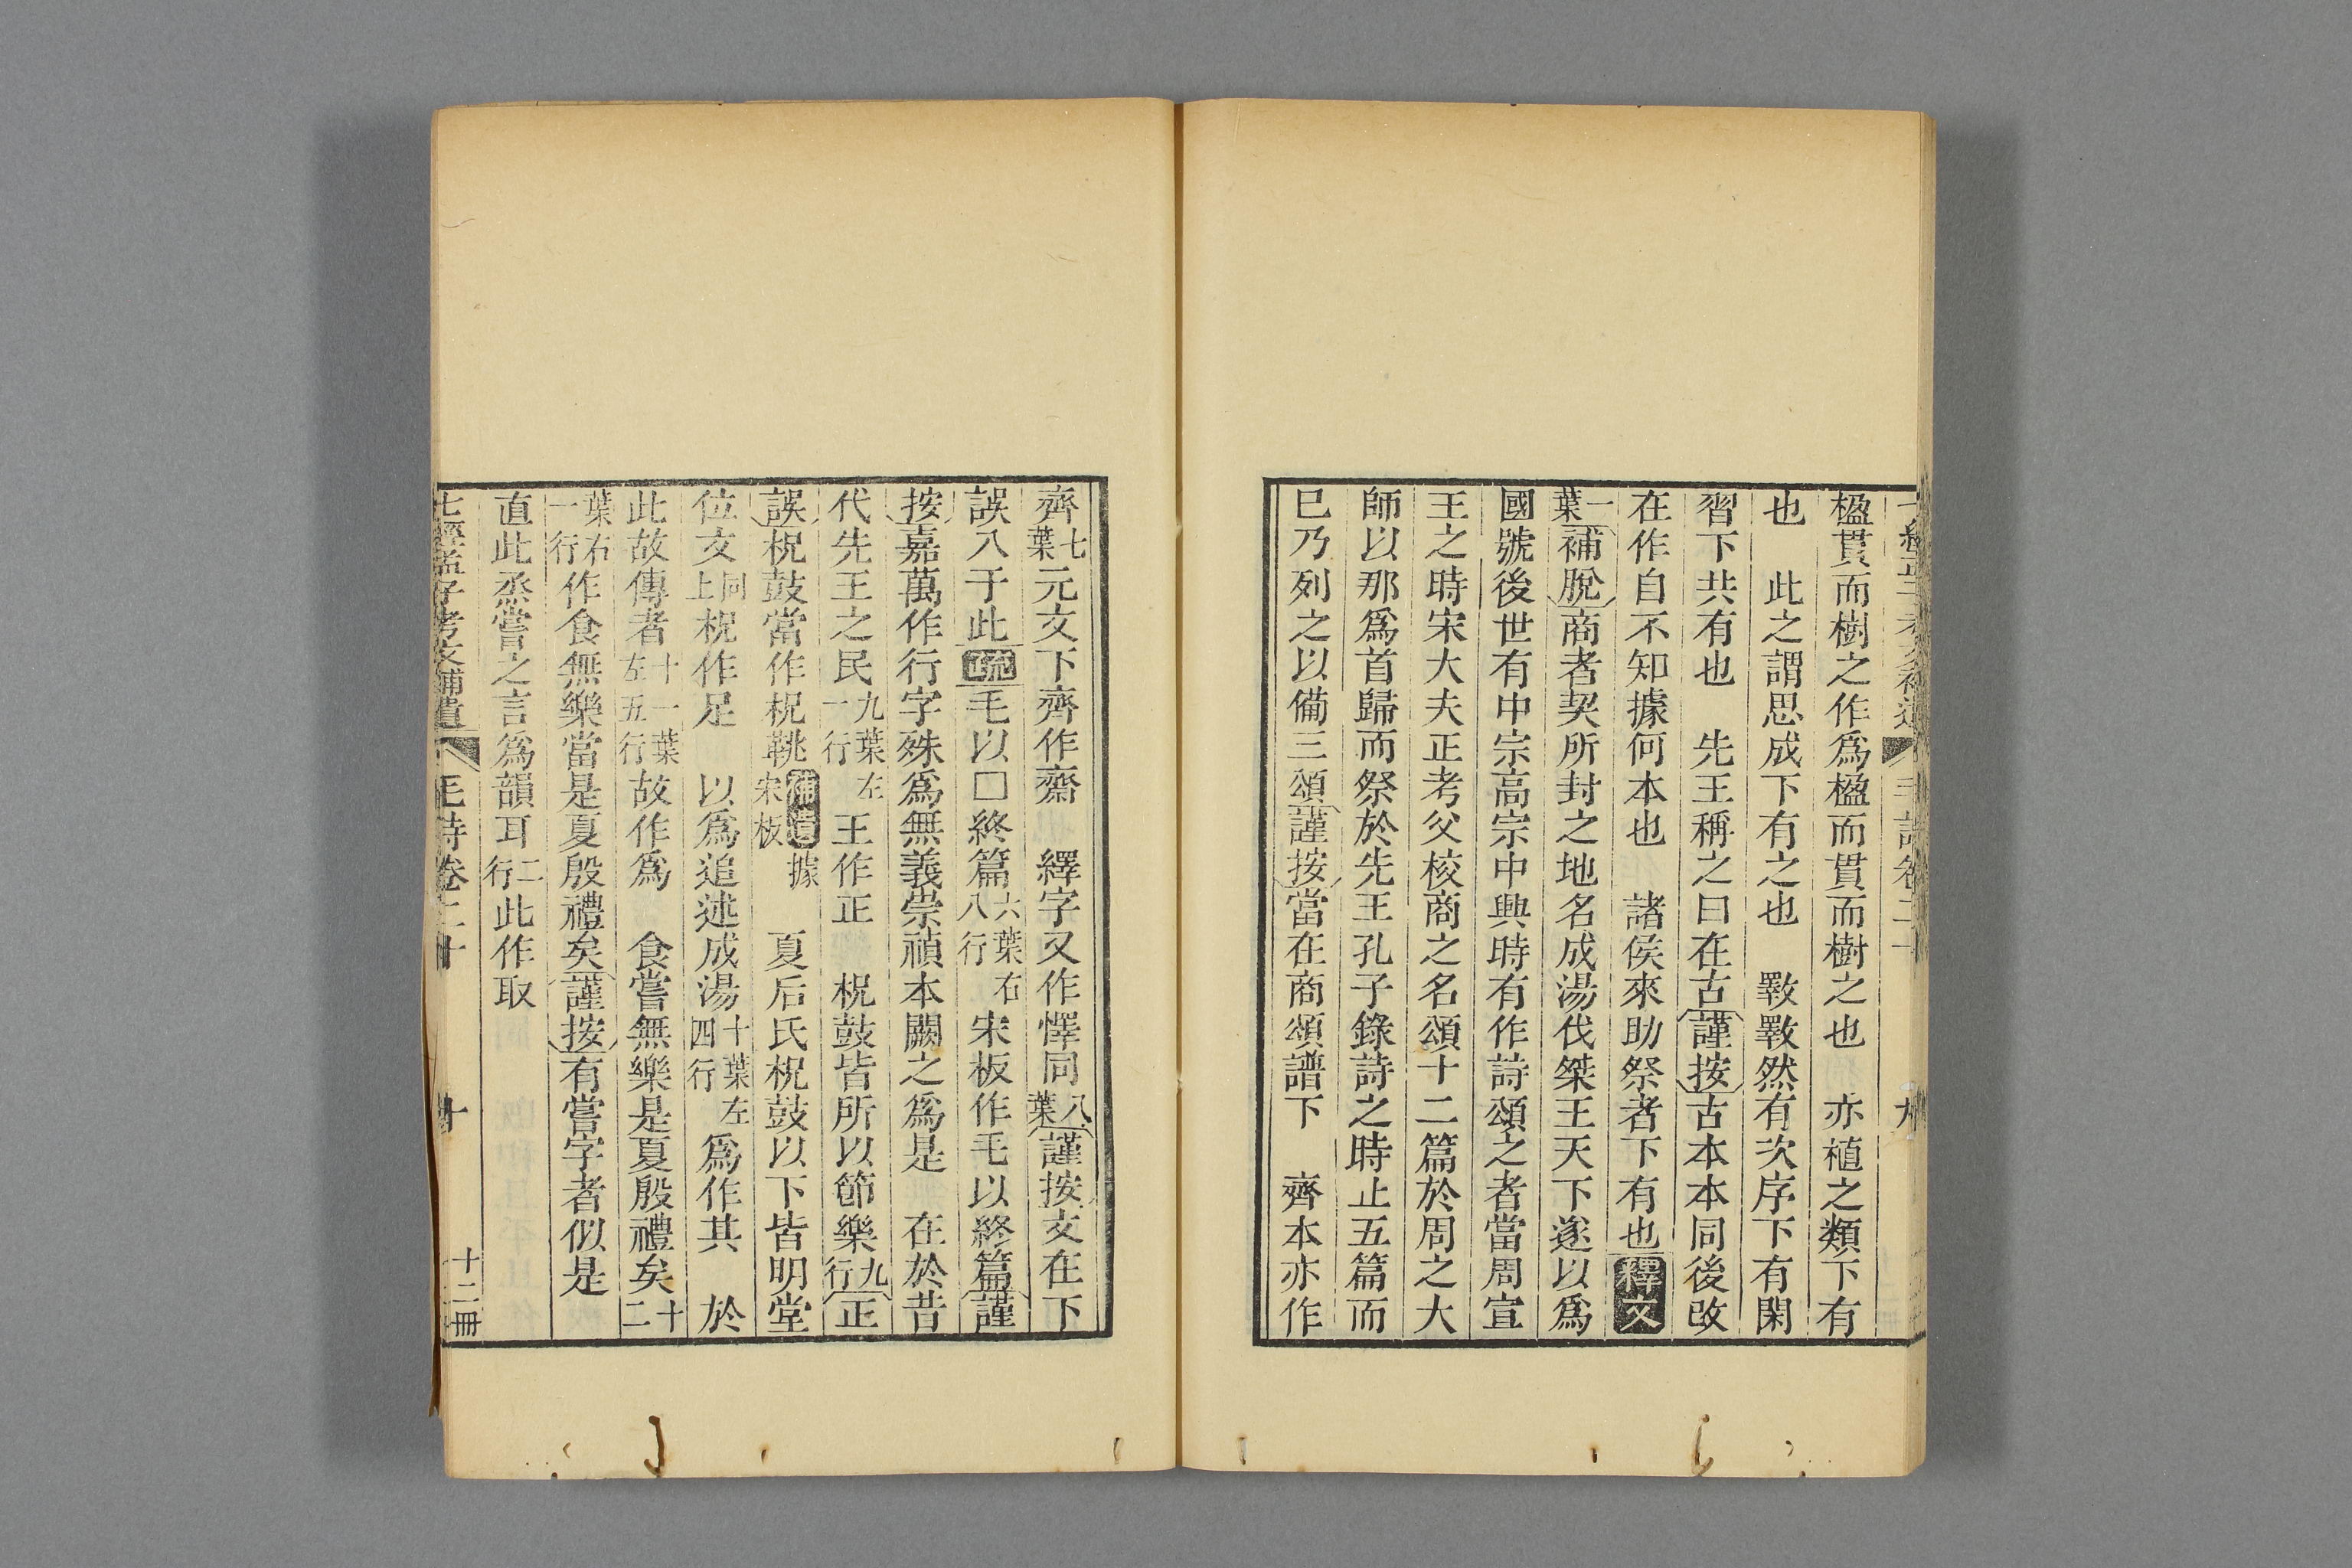 楹貫而樹之作爲楹而貫而樹之也　亦植之類下有
也　此之謂思成下有之也　斁斁然有次序下有閑
習下共有也　先王稱之曰在古謹按古本本同後改
在作自不知據何本也　諸侯來助祭者下有也釋文
一葉補脫商者契所封之地名成湯伐桀王天下遂以爲
國號後世有中宗高宗中興時有作詩頌之者當周宣
王之時宋大夫正考父校商之名頌十二篇於周之大
師以那爲首歸而祭於先王孔子錄詩之時止五篇而
巳乃列之以備三頌謹按當在商頌譜下　齊本亦作
齊七葉元文下齊作齋　繹字又作懌同八葉謹按文在下
誤入于此疏毛以□終篇六葉右八行宋板作毛以終篇謹
按嘉萬作行字殊爲無義崇禎本闕之爲是　在於昔
代先王之民九葉左一行王作正　柷鼓皆所以節樂九行正
誤柷鼓當作柷鞉補遺據宋板　夏后氏柷鼓以下皆明堂
位文同上柷作足　以爲追述成湯十葉左四行爲作其　於
此故傳者十一葉左五行故作爲　食嘗無樂是夏殷禮矣十二
葉右一行作食無樂當是夏殷禮矣謹按有嘗字者似是
直此烝嘗之言爲韻耳二行此作取
七經孟子考文補遺　毛詩卷二十　十　十二冊